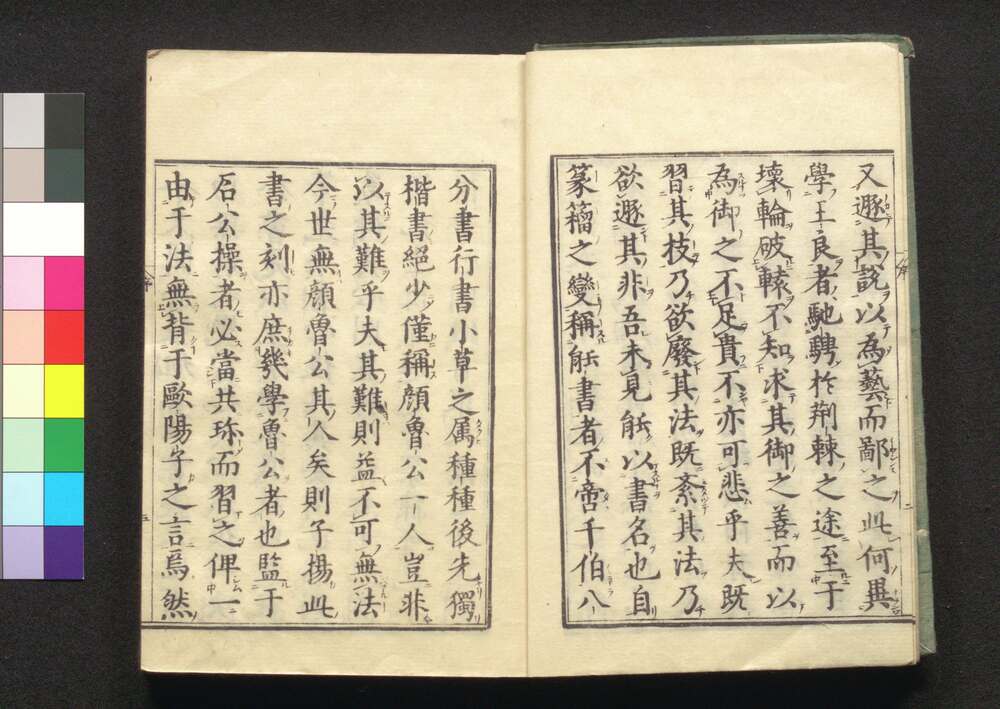 又遯其説以為藝而鄙之此何異
學王良者馳騁於荊棘之途至于
壊輪破轅不知求其御之善而以
為御之不足貴不亦可悲乎夫既
習其技乃欲廢其法既紊其法乃
欲遯其非吾未見能以書名也自
篆籀之變稱能書者不啻千伯八
分書行書小草之属種種後先獨
楷書絕少僅稱顔魯公一人豈非
以其難乎夫其難則益不可無法
今世無顔魯公其人矣則子揚此
書之刻亦庶幾學魯公者也監于
石公操者必當共珎而習之俾一
由于法無背于歐陽子之言焉然